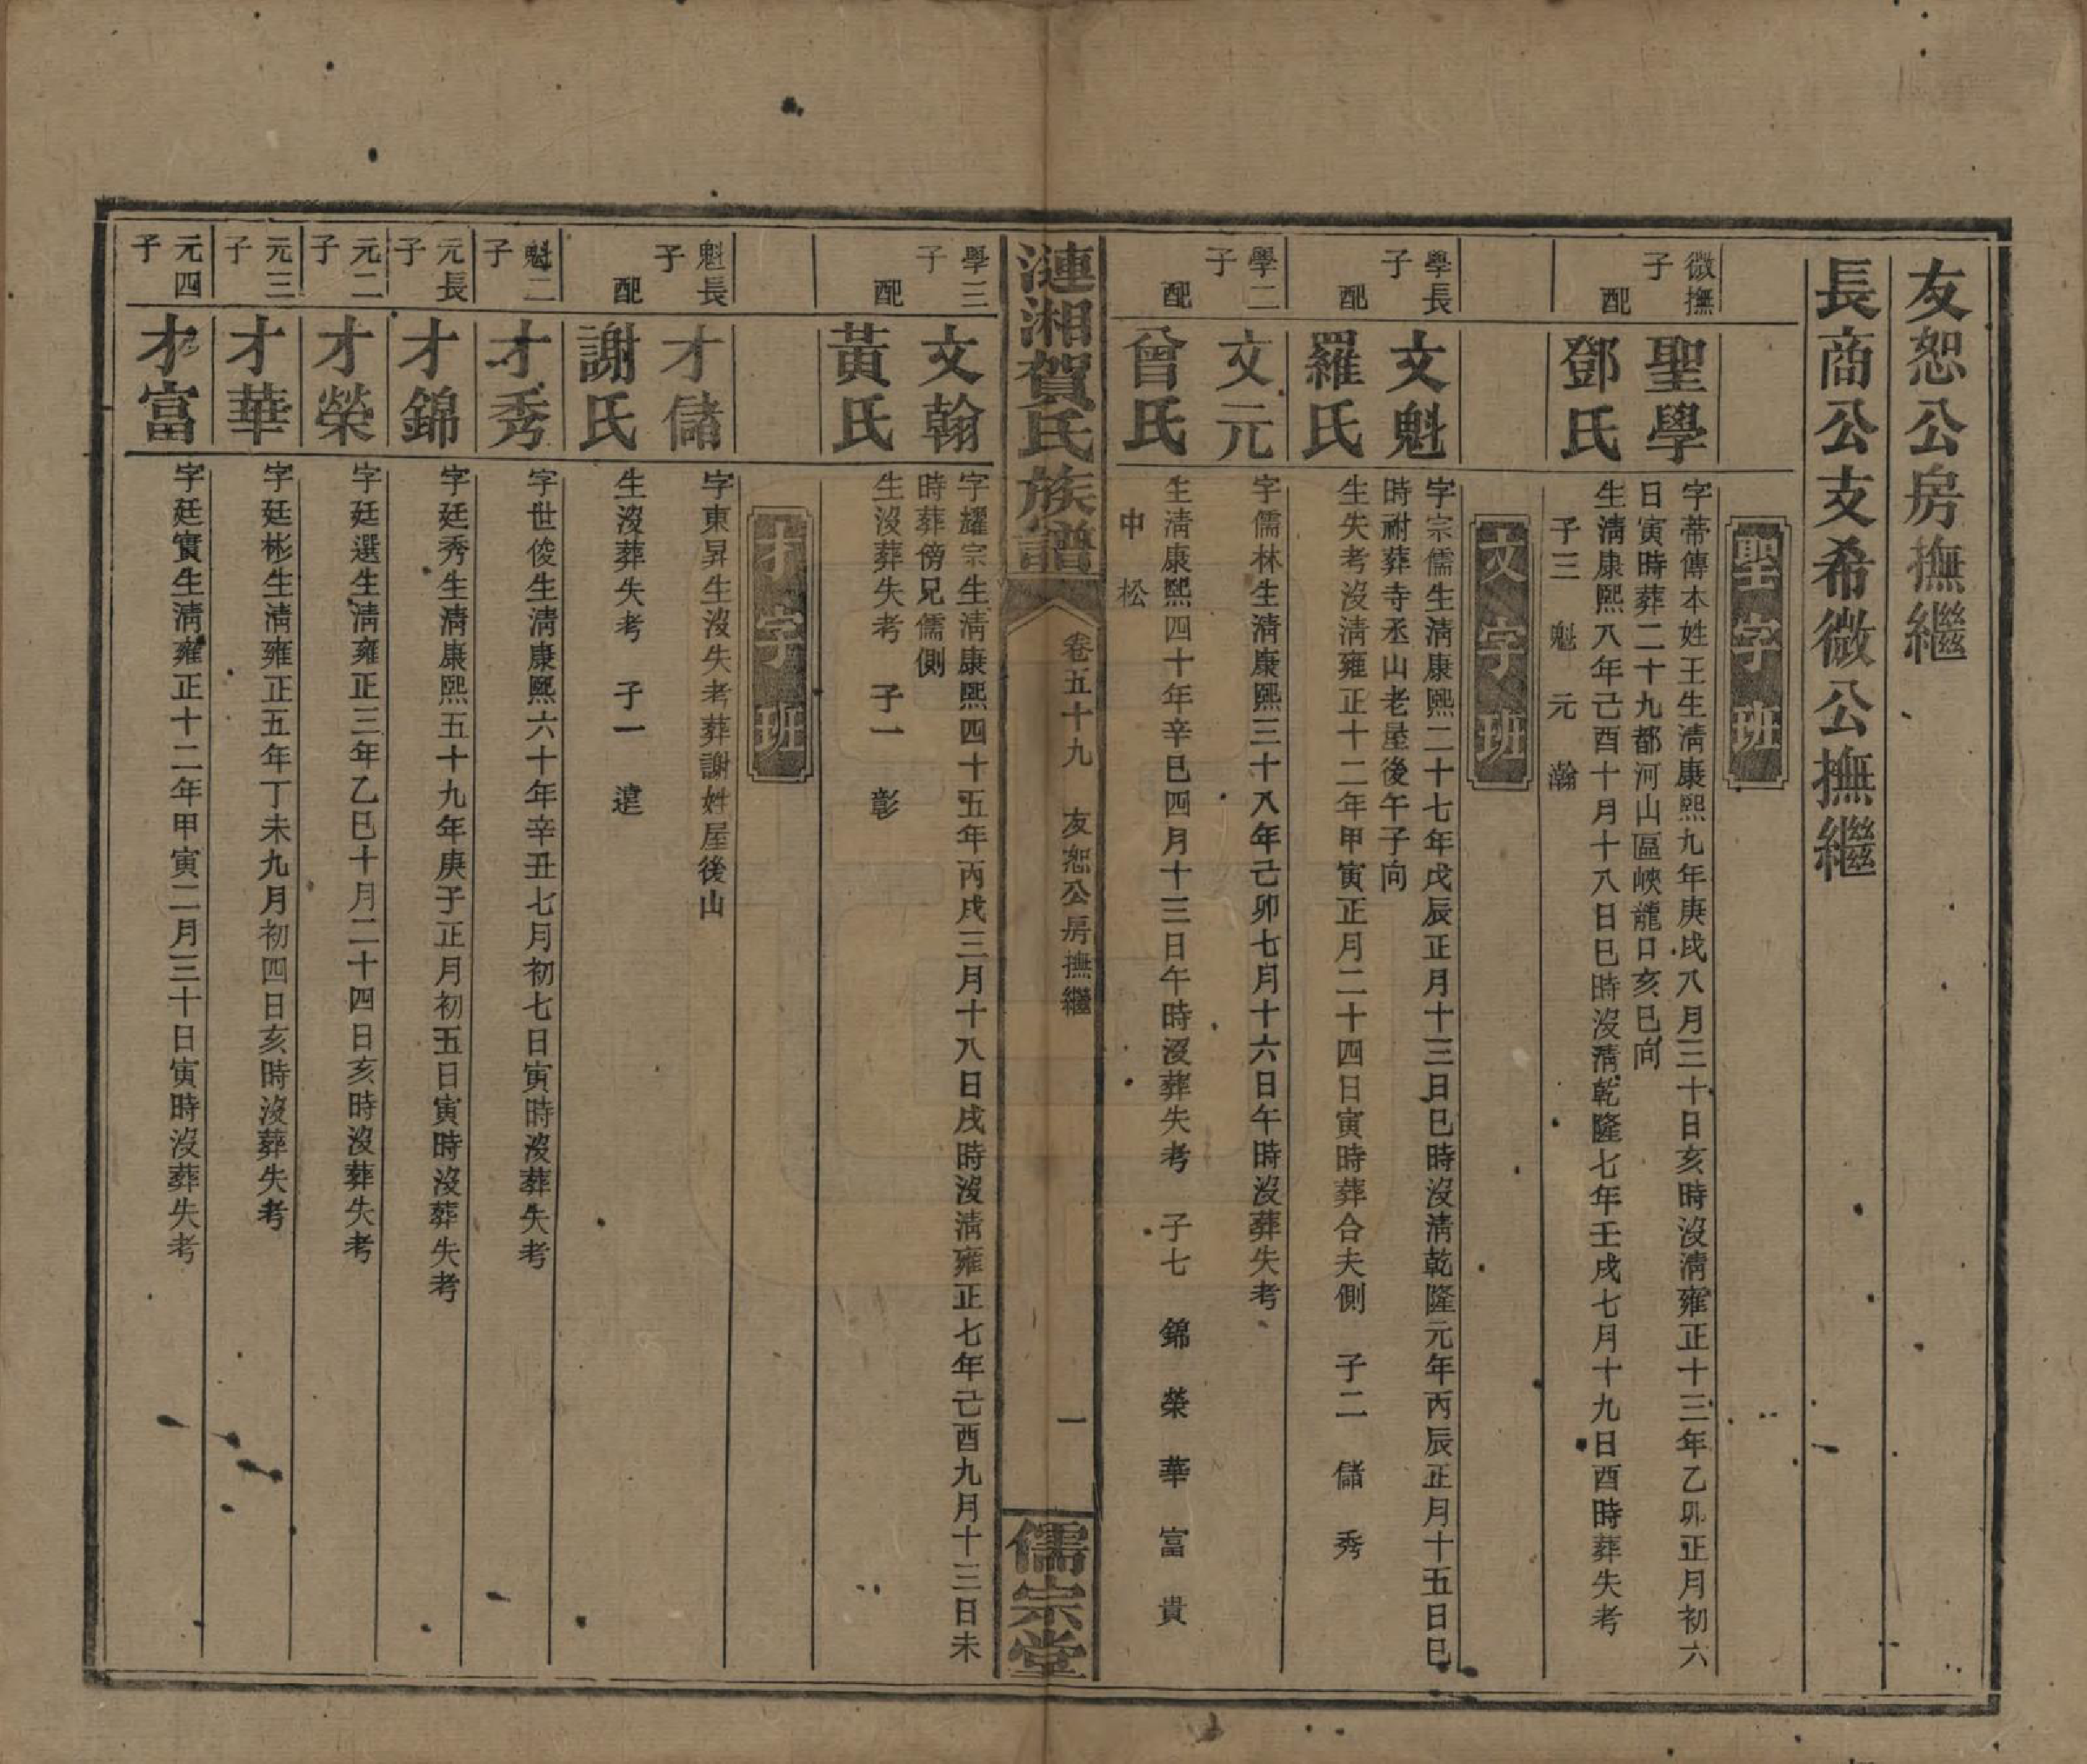 友恕公房撫繼
長商公支希微公撫繼
聖字班
微撫子
聖學
字蒂傳本姓王生淸康熙九年庚戌八月三十日亥時沒淸雍正十三年乙卯正月初六
日寅時葬二十九都河山區峽龍日亥巳向
配
鄧氏
生淸康熙八年己酉十月十八日巳時沒淸乾隆七年壬戌七月十九日酉時葬失考
子三 魁 元 瀚
文字班
學長子
文魁
字宗儒生淸康熙二十七年戊辰正月十三日巳時沒淸乾隆元年丙辰正月十五日巳
時祔葬寺丞山老屋後午子向
配
羅氏
生失考沒淸雍正十二年甲寅正月二十四日寅時葬合夫側 子二 儲 秀
學二子
文元
字儒林生淸康熙三十八年己卯七月十六日午時沒葬失考
配
曾氏
生淸康熙四十年辛巳四月十三日午時沒葬失考 子七 錦 榮 華 富 貴
中 松
漣湘賀氏族譜
卷五十九 友恕公房撫繼
一
儒宗堂
學三子
文翰
字耀宗生淸康熙四十五年丙戌三月十八日戌時沒淸雍正七年己酉九月十三日未
時葬傍兄儒側
配
黃氏
生沒葬失考 子一 彰
才字班
魁長子
才儲
字東昇生沒失考葬謝姓屋後山
配
謝氏
生沒葬失考 子一 遠
魁二子
才秀
字世俊生淸康熙六十年辛丑七月初七日寅時沒葬失考
元長子
才錦
字廷秀生淸康熙五十九年庚子正月初五日寅時沒葬失考
元二子
才榮
字廷選生淸雍正三年乙巳十月二十四日亥時沒葬失考
元三子
才華
字廷彬生淸雍正五年丁未九月初四日亥時沒葬失考
元四子
才富
字廷實生淸雍正十二年甲寅二月三十日寅時沒葬失考